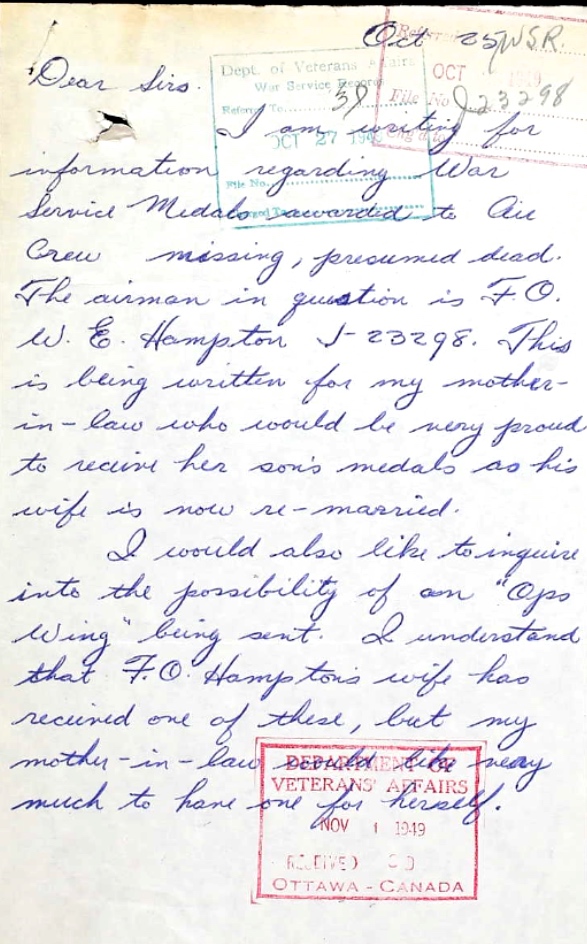 Oct 25/ W.S.R.
Dear Sirs.
Dept. of Veterans Affairs
War Service Records
Referred To
OCT 27
File No.
OCT 1949
File No J23298
I am writing for
information regarding War
Service Medals awarded to Air
Crew missing, presumed dead.
The airman in question is F.O.
W. E. Hampton J-23298. This
is being written for my mother-
in-law who would be very proud
to receive her son's medals as his
wife is now re-married.
I would also like to inquire
into the possibility of an "Ops
Wing" being sent. I understand
that F.O. Hampton's wife has
received one of these, but my
mother-in-law would like very
much to have one for herself.
DEPARTMENT OF
VETERANS' AFFAIRS
NOV 1 1949
RECEIVED
OTTAWA - CANADA